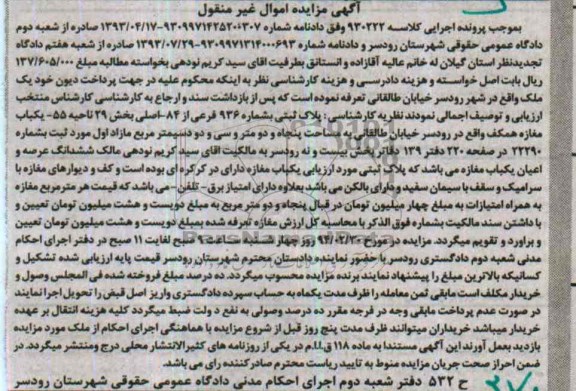 آگهی مزایده اموال غیر منقول
بموجب پرونده اجرایی کلاسه ۹۳۰۲۲۲ وفق دادنامه شماره ۹۳۰۹۹۷۱۴۲۵۲۰۱۳۰۷-۱۳۹۳/۰۴/۱۷ صادره از شعبه دوم
دادگاه عمومی حقوقی شهرستان رودسر و دادنامه شماره ۹۳۰۹۹۷۱۳۱۴۰۰۰۶۹۳-۱۳۹۳/۰۷/۲۹ صادره از شعبه هفتم دادگاه
تجدیدنظر استان گیلان له خانم عالیه آقازاده و استانق بطرفیت اقای سید کریم نودهی بخواسته مطالبه مبلغ ۱۳۷/۶۰۵/۰۰۰
ریال بابت اصل خواسته و هزینه دادرسی و هزینه کارشناسی نظر به اینکه محکوم علیه در جهت پرداخت دیون خود یک
ملک واقع در شهر رودسر خیابان طالقانی تعرفه نموده است که پس از بازداشت سند و ارجاع به کارشناسی کارشناس منتخب
ارزیابی و توصیف اجمالی نمودند نظریه کارشناسی: پلاک ثبتی بشماره ۹۳۶ فرعی از ۸۴-اصلی بخش ۲۹ ناحیه ۵۵- یکباب
مغازه همکف واقع در رودسر خیابان طالقانی به مساحت پنجاه و دو متر و سی و دو دسیمتر مربع مازاد اول مورد ثبت بشماره
۲۲۲۹۰ در صفحه ۲۲۰ دفتر ۱۳۹ دفاتر بخش بیست و نه رودسر به مالکیت اقای سید کریم نودهی مالک ششدانگ عرصه و
اعیان یکباب مغازه می باشد که پلاک ثبتی مورد ارزیابی یکباب مغازه دارای در کرکره ای بوده است و کف و دیوارهای مغازه با
سرامیک و سقف با سیمان سفید و دارای بالکن می باشد بعلاوه دارای امتیاز برق- تلفن - می باشد که قیمت هر مترمربع مغازه
به همراه امتیازات به مبلغ چهار میلیون تومان در قبال پنجاه و دو متر مربع به مبلغ دویست و هشت میلیون تومان تعیین و
با داشتن سند مالکیت بشماره فوق الذکر با محاسبه کل ارزش مغازه تعرفه شده بمبلغ دویست و هشت میلیون تومان تعیین
و براورد و تقویم میگردد. مزایده در مورخ ۹۴/۰۲/۳۰ روز چهارشنبه ساعت صبح لغایت ۱۱ صبح در دفتر اجرای احکام
مدنی شعبه دوم دادگستری رودسر با حضور نماینده دادستان محترم شهرستان رودسر قیمت پایه ارزیابی شده تشکیل و
کسانیکه بالاترین مبلغ را پیشنهاد نمایند برنده مزایده محسوب میگردد. ده درصد مبلغ فروخته شده فی المجلس وصول و
خریدار مکلف است مابقی ثمن معامله را ظرف مدت یکماه به حساب سپرده دادگستری واریز اصل قبض را تحویل اجرا نمایند
در صورت عدم پرداخت مابقی وجه در فرجه مقرر ده درصد وصولی به نفع دولت ضبط میگردد کلیه هزینه انتقال بر عهده
خریدار میباشد خریداران میتوانند ظرف مدت پنج روز قبل از شروع مزایده با هماهنگی اجرای احکام از ملک مورد مزایده
بازدید بعمل آورند این آگهی مستندا به ماده ۱۱۸ ق.ا.ا.م در یکی از روزنامه های کثیرالانتشار محلی درج ومنتشر میگردد. در
ضمن احراز صحت جریان مزایده منوط به تایید ریاست محترم صادرکننده رای می باشد.
ح ۵۳۳ دفتر شعبه دوم اجرای احکام مدنی دادگاه عمومی حقوقی شهرستان رودسر